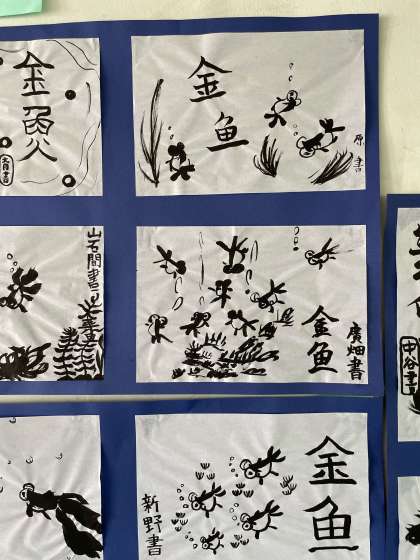 金魚
金魚
原書
岩間書
金魚
廣畑書
中谷
金魚
新野書